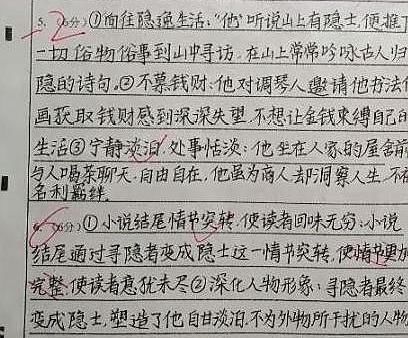 -2
5. (6分) ①向往隐逸生活:"他"听说山上有隐士,便推
一切俗物俗事到山中寻访,在山上常常吟咏古人归
隐的诗句。②不慕钱财:他对调琴人邀请他书法
画获取钱财感到深深失望,不想让金钱束缚自己的
生活③宁静淡泊,处事恬淡:他坐在人家的屋舍前
与人喝茶聊天,自由自在,他虽为商人却洞察人生,不
名利羁绊。
6. (6分) ①小说结尾情节突转,使读者回味无穷:小说
结尾通过寻隐者变成隐士这一情节突转,使情节更加
完整,使读者意犹未尽②深化人物形象:寻隐者最终
变成隐士,塑造了他自甘淡泊,不为外物所干扰的人物